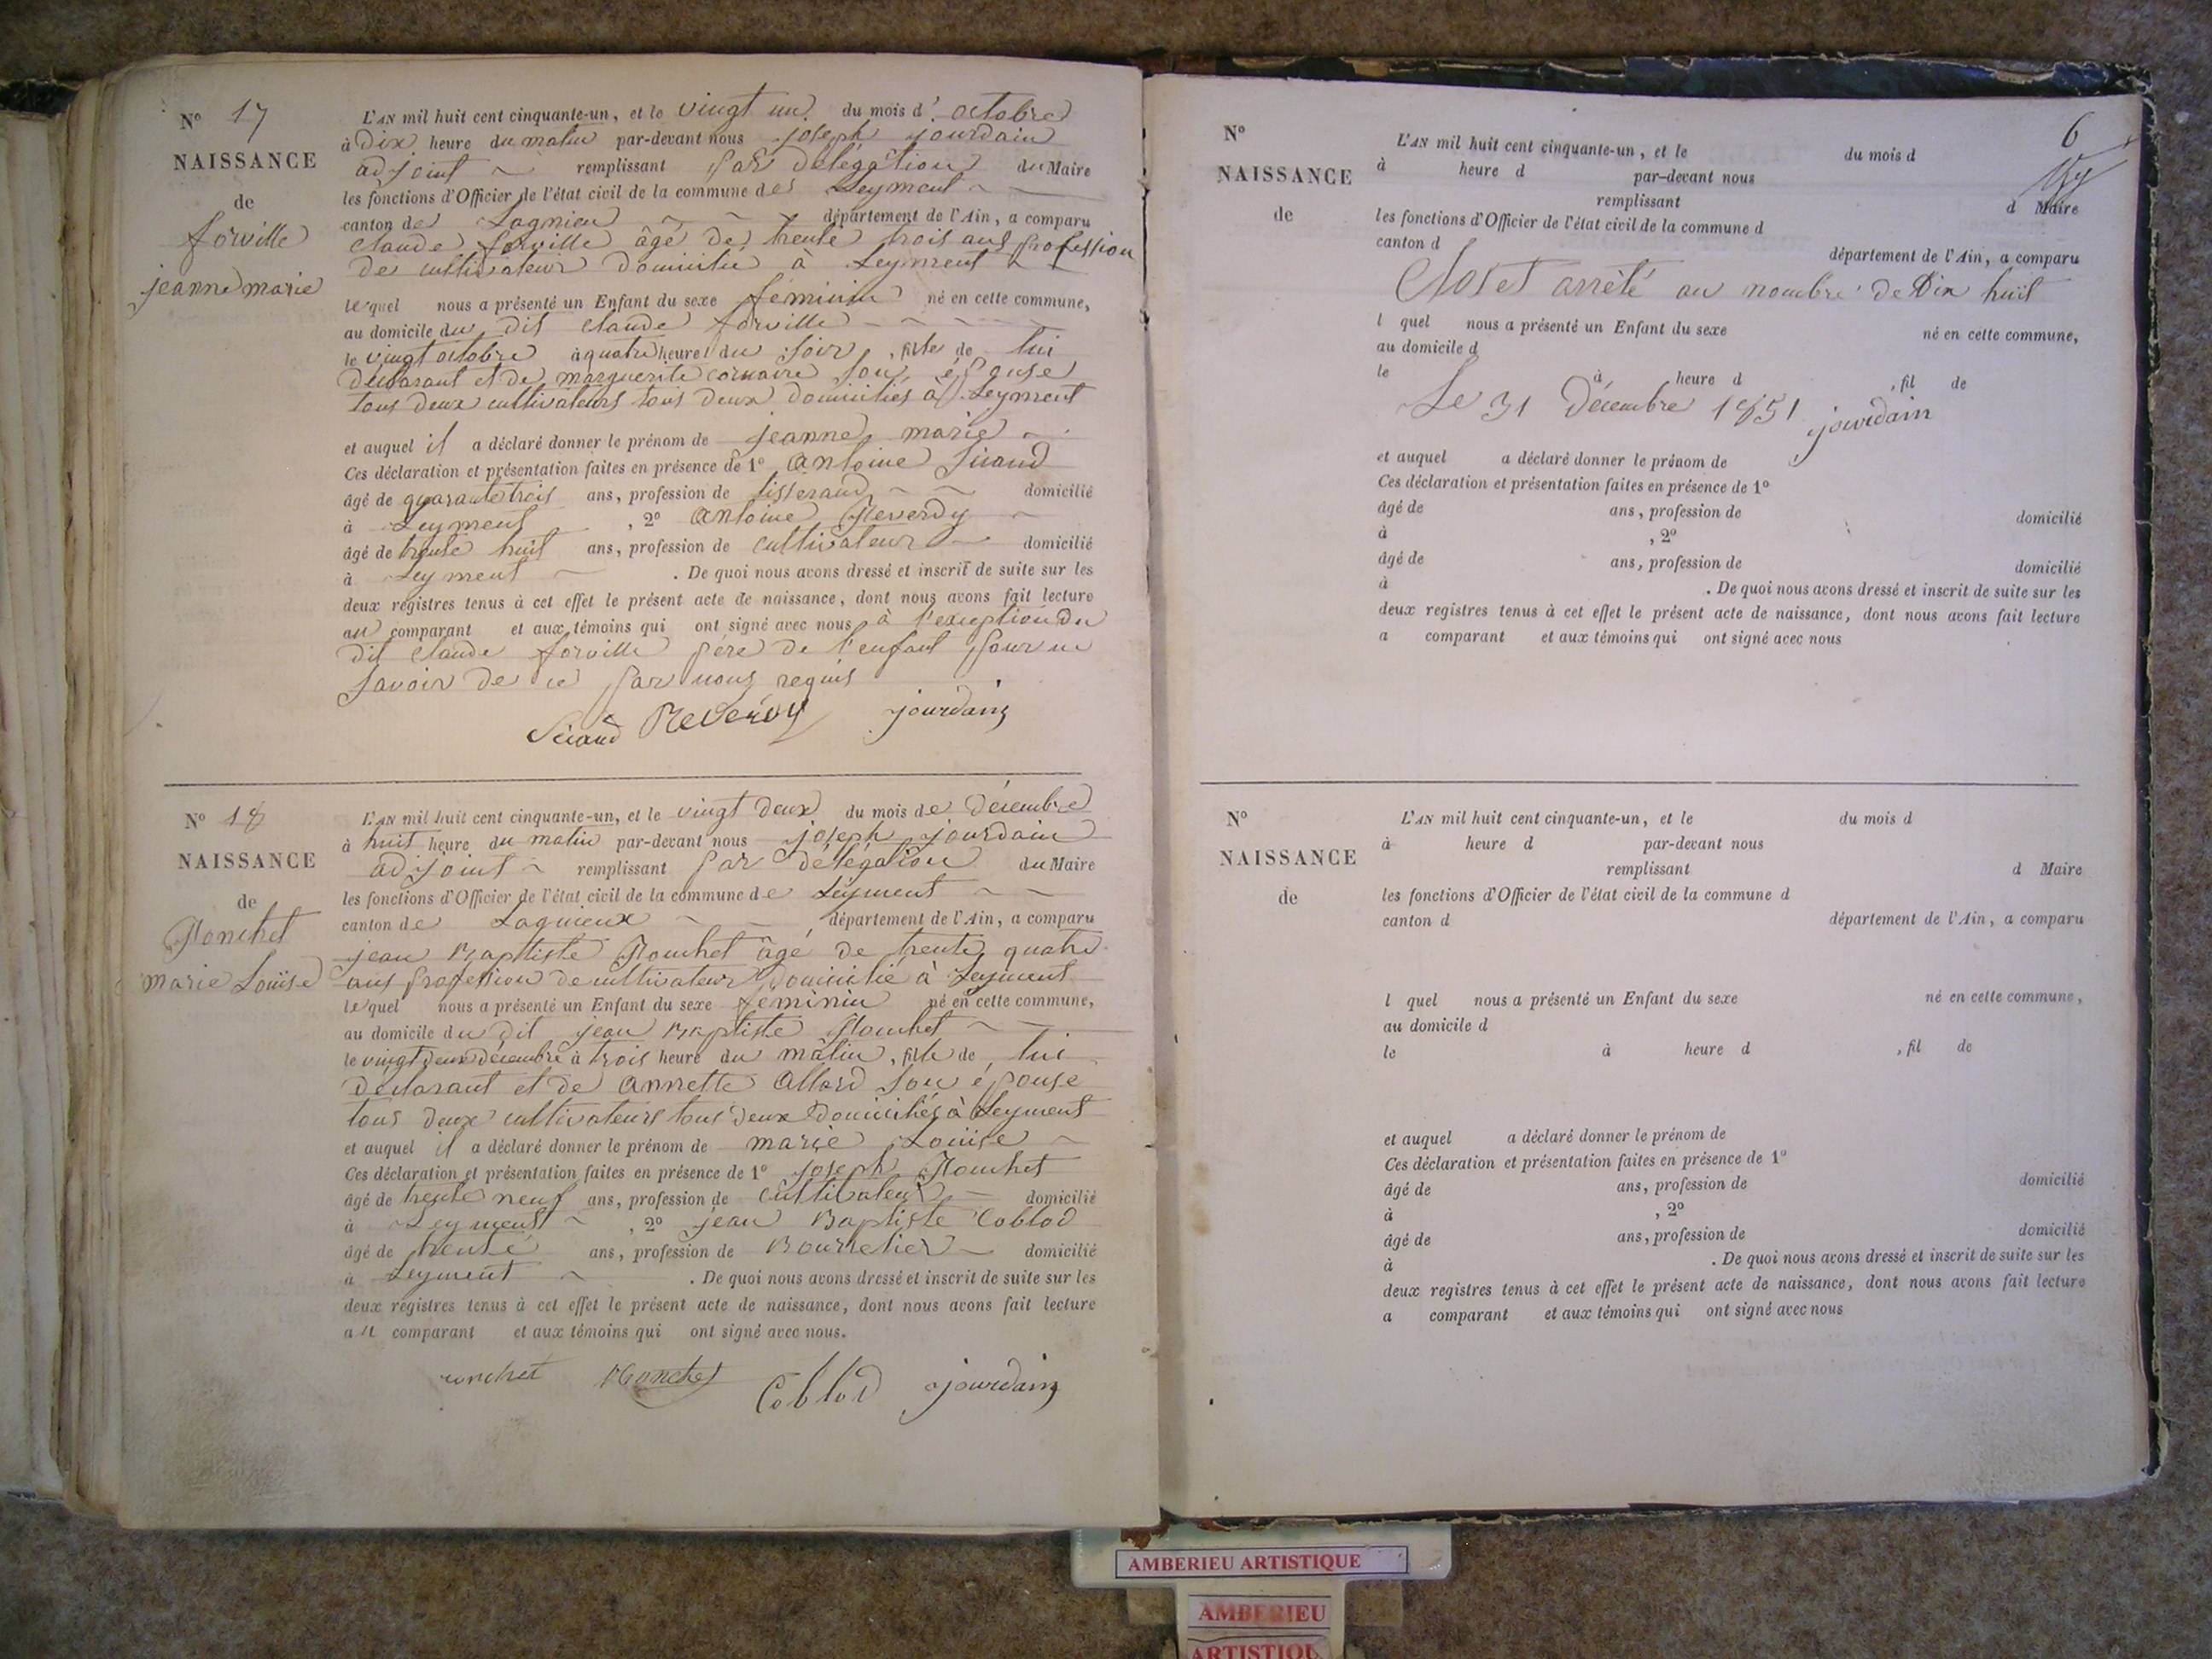 N° 17
NAISSANCE
de
forville
jeanne marie
L'AN mil huit cent cinquante-un, et le vingt un du mois d'octobre
à Dix heure du matin par-devant nous joseph jourdain
adjoint remplissant par délégation du Maire
les fonctions d'Officier de l'état civil de la commune de Leyment
canton de Lagnieu département de l'Ain, a comparu
claude forville âgé de trente trois ans profession
de cultivateur domicilié à Leyment
lequel nous a présenté un Enfant du sexe féminin né en cette commune,
au domicile du dit claude forville
le vingt octobre à quatre heure du soir, fille de lui
déclarant et de marguerite son épouse
tous deux cultivateurs tous deux domiciliés à Leyment
et auquel il a déclaré donner le prénom de jeanne marie
Ces déclaration et présentation faites en présence de 1° Antoine
âgé de quarante trois ans, profession de tisserand domicilié
à Leyment, 2° Antoine Reverdy
âgé de trente huit ans, profession de cultivateur domicilié
à Leyment. De quoi nous avons dressé et inscrit de suite sur les
deux registres tenus à cet effet le présent acte de naissance, dont nous avons fait lecture
au comparant et aux témoins qui ont signé avec nous à l'exception du
dit claude forville père de l'enfant pour ne
savoir de ce par nous requis
Reverdy jourdain
N° 18
NAISSANCE
de
Ronchet
marie Louise
L'AN mil huit cent cinquante-un, et le vingt deux du mois de décembre
à huit heure du matin par-devant nous joseph jourdain
adjoint remplissant par délégation du Maire
les fonctions d'Officier de l'état civil de la commune de Leyment
canton de Lagnieux département de l'Ain, a comparu
jean Baptiste Ronchet âgé de trente quatre
ans profession de cultivateur domicilié à Leyment
lequel nous a présenté un Enfant du sexe féminin né en cette commune,
au domicile du dit jean Baptiste Ronchet
le vingt deux décembre à trois heure du matin, fille de lui
déclarant et de Annette Allard son épouse
tous deux cultivateurs tous deux domiciliés à Leyment
et auquel il a déclaré donner le prénom de marie Louise
Ces déclaration et présentation faites en présence de 1° joseph Ronchet
âgé de trente neuf ans, profession de cultivateur domicilié
à Leyment, 2° jean Baptiste Coblod
âgé de trente ans, profession de Bourrelier domicilié
à Leyment. De quoi nous avons dressé et inscrit de suite sur les
deux registres tenus à cet effet le présent acte de naissance, dont nous avons fait lecture
au comparant et aux témoins qui ont signé avec nous.
ronchet Ronchet Coblod jourdain
6
N°
NAISSANCE
de
L'AN mil huit cent cinquante-un, et le du mois d
à heure d par-devant nous
remplissant d Maire
les fonctions d'Officier de l'état civil de la commune d
canton d département de l'Ain, a comparu
Clos et arrêté au nombre de Dix huit
l quel nous a présenté un Enfant du sexe né en cette commune,
au domicile d
le à heure d , fil de
Le 31 Décembre 1851 jourdain
et auquel a déclaré donner le prénom de
Ces déclaration et présentation faites en présence de 1°
âgé de ans, profession de domicilié
à , 2°
âgé de ans, profession de domicilié
à . De quoi nous avons dressé et inscrit de suite sur les
deux registres tenus à cet effet le présent acte de naissance, dont nous avons fait lecture
a comparant et aux témoins qui ont signé avec nous
N°
NAISSANCE
de
L'AN mil huit cent cinquante-un, et le du mois d
à heure d par-devant nous
remplissant d Maire
les fonctions d'Officier de l'état civil de la commune d
canton d département de l'Ain, a comparu
l quel nous a présenté un Enfant du sexe né en cette commune,
au domicile d
le à heure d , fil de
et auquel a déclaré donner le prénom de
Ces déclaration et présentation faites en présence de 1°
âgé de ans, profession de domicilié
à , 2°
âgé de ans, profession de domicilié
à . De quoi nous avons dressé et inscrit de suite sur les
deux registres tenus à cet effet le présent acte de naissance, dont nous avons fait lecture
a comparant et aux témoins qui ont signé avec nous
AMBERIEU ARTISTIQUE
AMBERIEU
ARTISTIQU